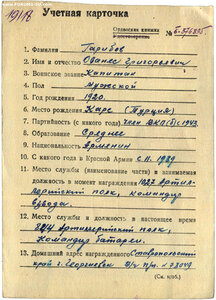 19/18
Учетная карточка
Орденская книжка
№ Б-576895
1. Фамилия Гарибов
2. Имя и отчество Ованес Григорьевич
3. Воинское звание Капитан
4. Пол Мужской
5. Год рождения 1920.
6. Место рождения Карс (Турция)
7. Партийность (с какого года) член ВКП(б) с 1943
8. Образование Среднее
9. Национальность Армянин
10. С какого года в Красной Армии с 1939
11. Место службы (наименование части) и занимаемая
должность в момент награждения 1027 Артил-
лерийский полк, командир
взвода
12. Место службы и должность в настоящее время
Артиллерийский полк,
Командир батареи.
13. Домашний адрес награжденного Ставропольский
край г. Георгиевск в/ч п/п
(См. на об.)